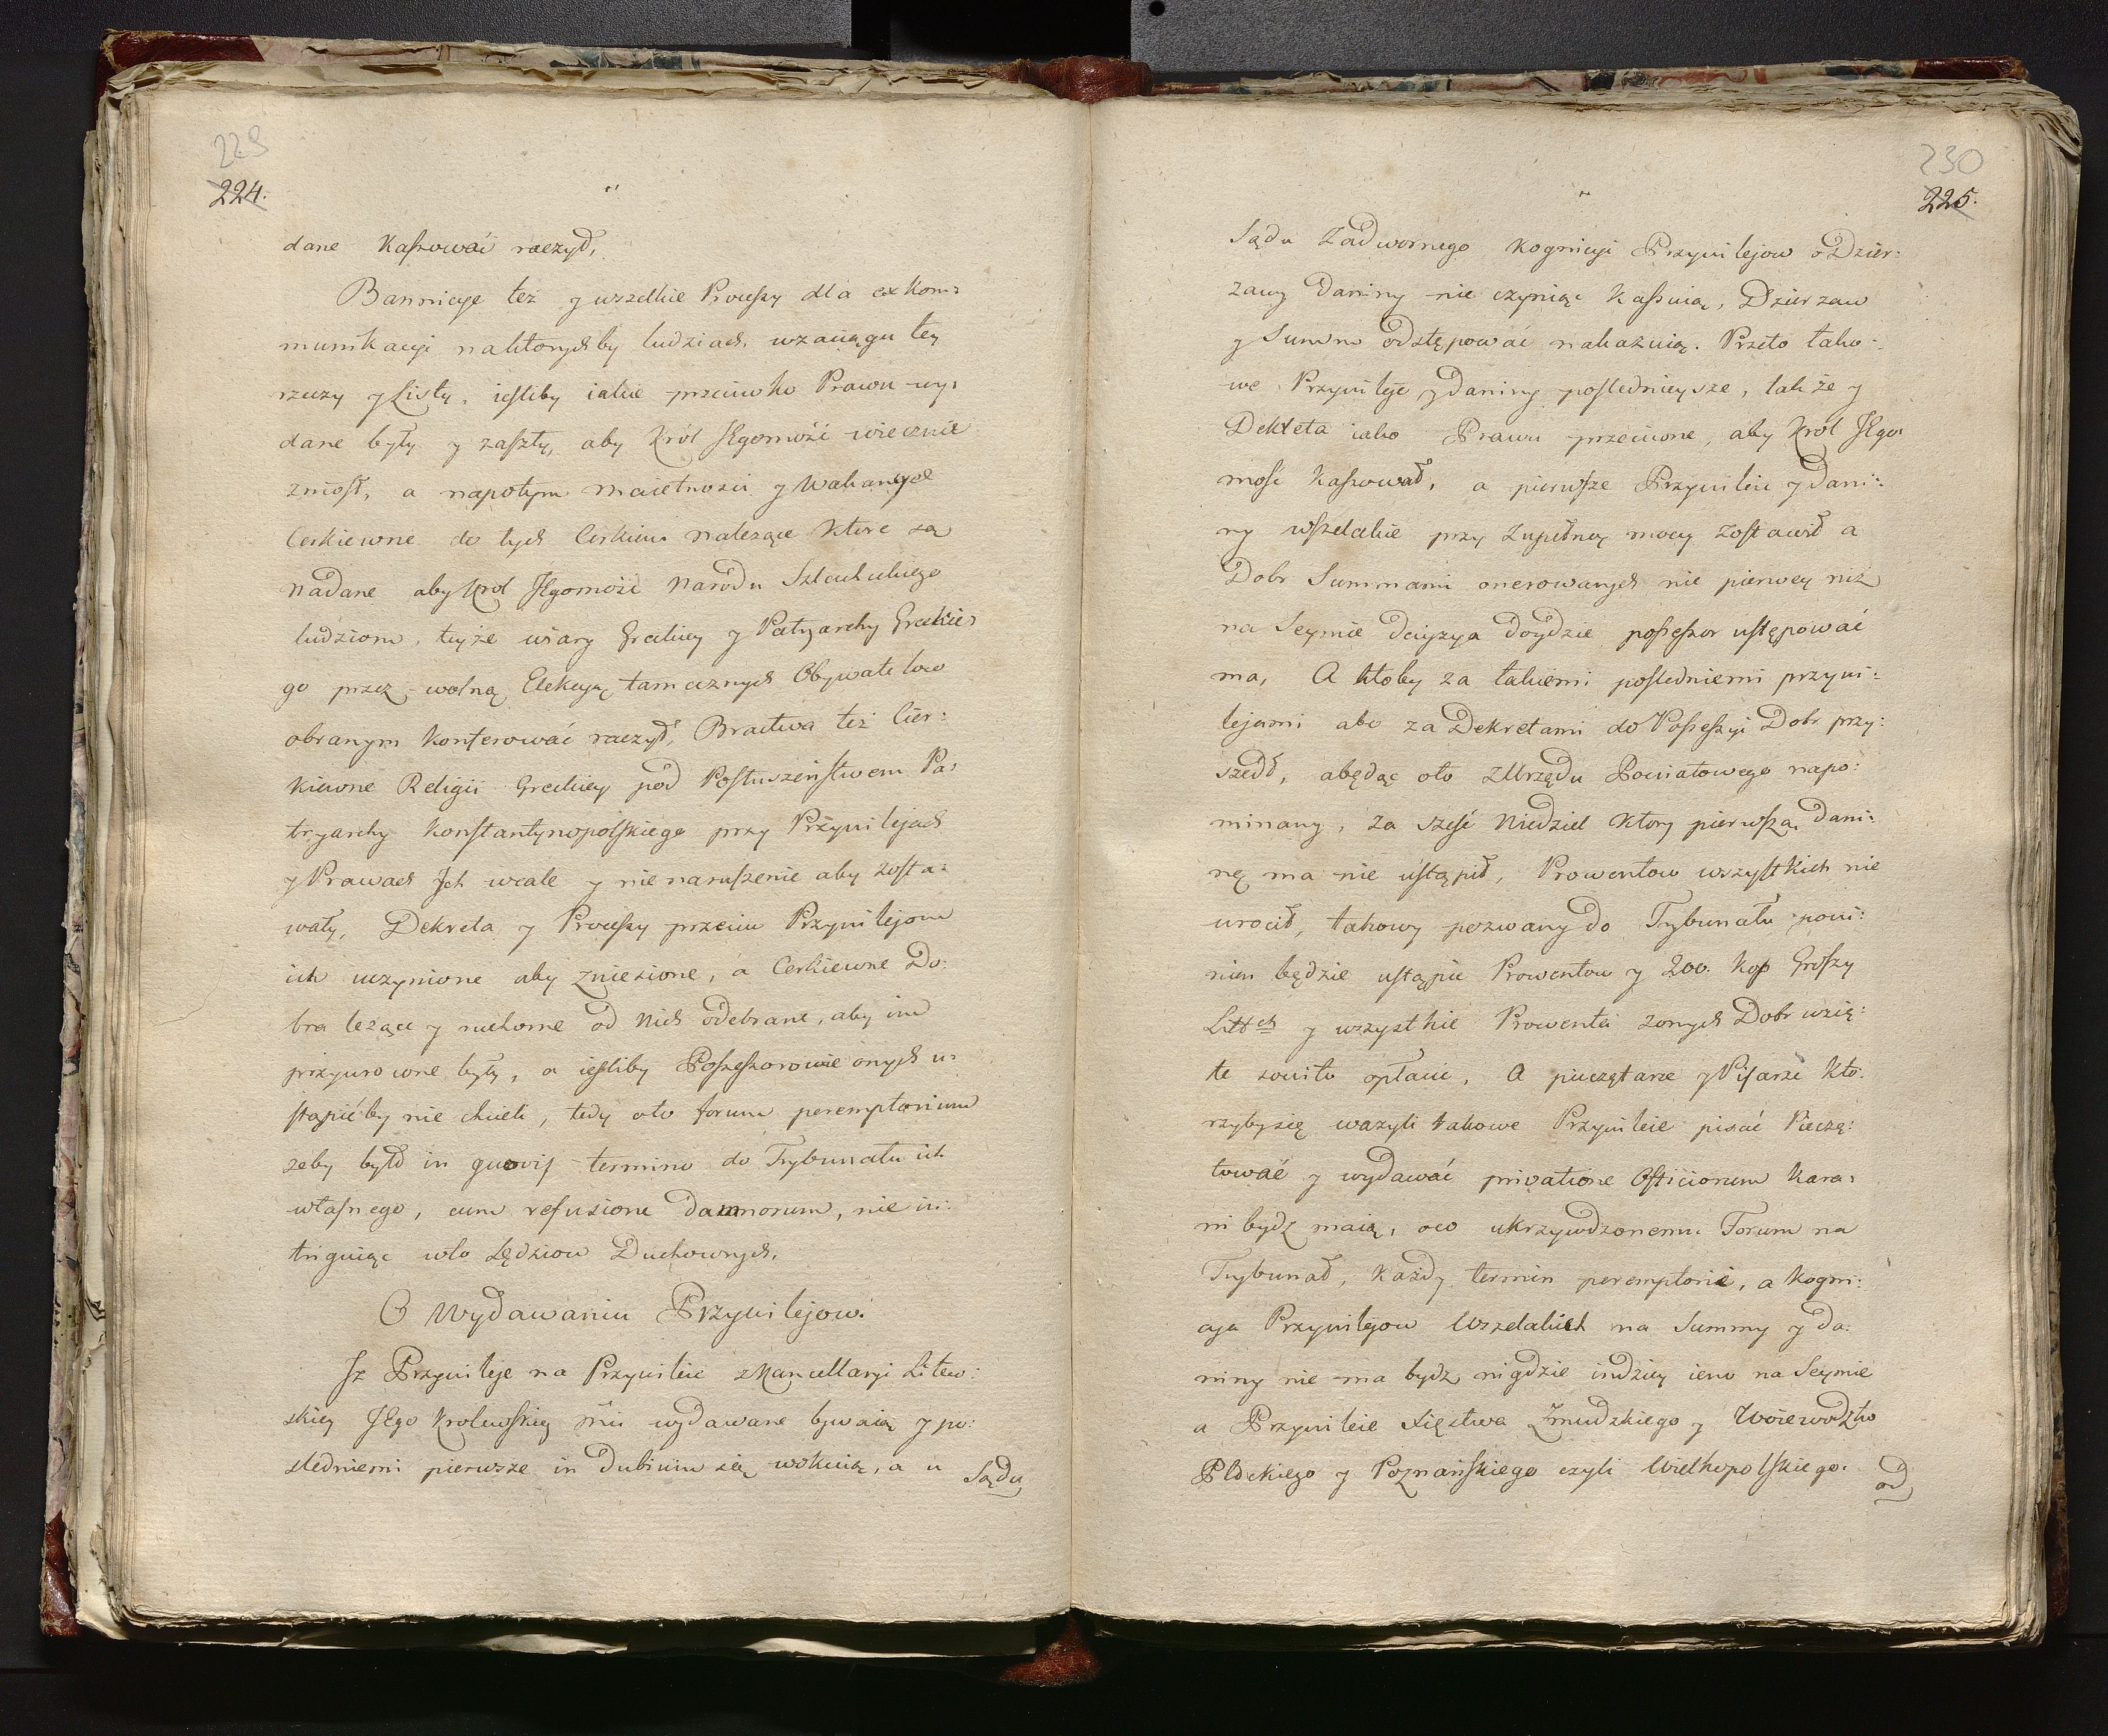 229
224.
dane Kaſsować raczył,
Bannicye też y wszelkie Proceſsy dla exkom:
munikacyi na ktorychby ludziach, wzaciągu tey
rzeczy y Listy, ieſliby iakie przeciwko Prawu wy:
dane były y zaſzły, aby Król JEgomość wiecznie
znioſł, a napotym maiętności y Wakanyce
Cerkiewne do tych Cerkiew należące które są
nadane aby Krol JEgomość Narodu Szlacheckiego
ludziom, teyże wiary Greckiey y Patryarchy Greckie:
go przez wolną Elekcyą tamecznych Obywatelow
obranym konferować raczył, Bractwa też Cier:
kiewne Religii Greckiey pod Poſłuszeńſtwem Pa:
tryarchy Konſtantynopolſkiego przy Przywilejach
y Prawach Jch wcale y nie naruſzenie aby zoſta:
wały, Dekreta y Proceſsy przeciw Przywilejom
ich uczynione aby zniesione, a Cerkiewne Do:
bra leżące y ruchome od Nich odebrane, aby im
przywrocone były, a ieſliby Poſseſsorowie onych u:
ſtąpićby nie chcieli, tedy oto forum peremptorium
żeby był in quovis termino do Trybunału ich
właſnego, cum refusione damnorum, nie in:
tryguiąc wto Sędziow Duchownych.
O Wydawaniu Przywilejow.
Jż Przywileje na Przywileie z Kancellaryi Litew:
skiey JEgo Krolewſkiey mći wydawane bywaią y po:
śledniemi pierwsze in Dubium się wokuią, a u
Sądu
230
225.
Sądu Zadwornego kognicyi Przywilejow o Dzier:
zawy Daniny nie czyniąc Kaſsuią, Dzierzaw
y Summ odstępować nakazuią. Przeto tako:
we Przywileje y daniny poſlednieysze, także y
Dekreta iako Prawu przeciwne, aby Krol JEgo
mość Kaſsował, a pierwſze Przywileie y Dani:
ny wſzelakie przy zupełney mocy zoſtawił a
Dobr Summami onerowanych nie pierwey niż
na Seymie decyzya doydzie poſseſsor uſtępować
ma, A ktoby za takiemi poſledniemi przywi:
lejami abo za Dekretami do Poſseſsyi Dobr przy:
szedł, abędąc oto z Urzędu Powiatowego napo:
minany, za sześć Niedziel ktory pierwſzą Dani:
nę ma nie uſtąpił, Prowentow wszyſtkich nie
wrocił, takowy pozwany do Trybunału powi:
nien będzie uſtąpić Prowentow y 200. Kop Groſzy
Litt<sup>ch</sup> y wszystkie Prowenta zonych Dobr wzię:
te sowito opłacić, A pieczętarze y Piſarze kto:
rzybysię wazyli takowe Przywileie pisać Pieczę:
tować y wydawać privatione Officiorum kara:
ni bydź maią, oco ukrzywdzonemu Forum na
Trybunał, każdy termin peremptorie, a kogni:
cya Przywilejow Wszelakich na Summy y da:
niny nie ma bydź nigdzie indziey ieno na Seymie
a Przywileie Xięstwa Zmudzkiego y Woiewodztw
Płockiego y Poznańſkiego czyli Wielkopolſkiego.
od